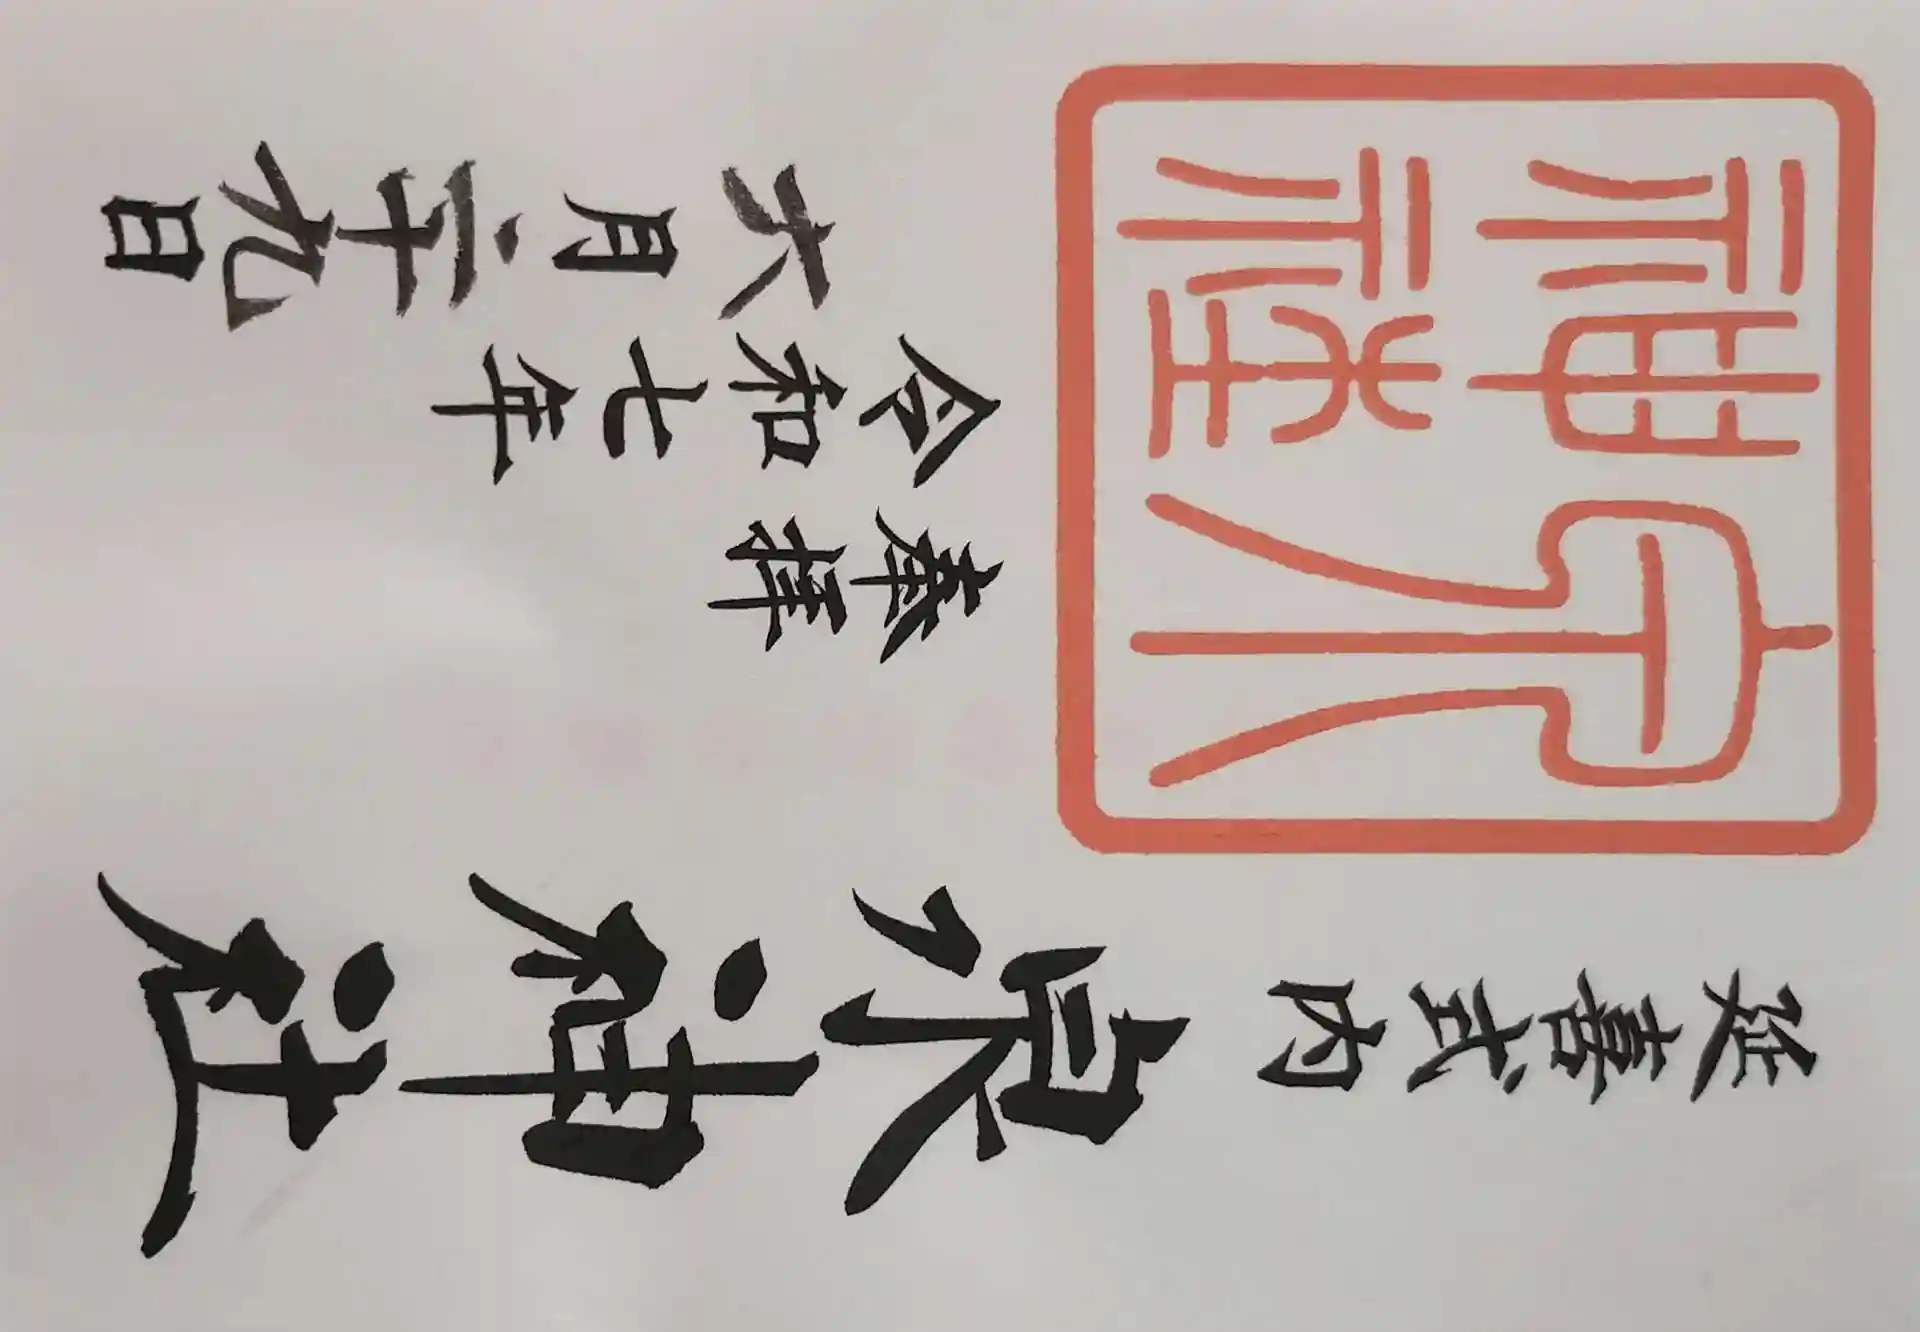 延喜式内
泉神社
泉
神社
奉拝
令和七年
六月二十九日